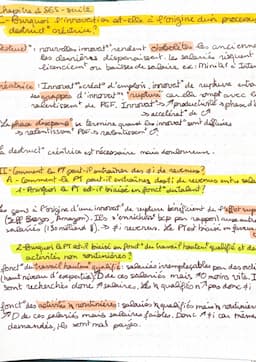 Chapitre 4 SES - suite
- Pourquoi l'innovation est-elle à l'origine d'un processus
destruct° créatrice ?
: nouvelles innovat° rendent obsolètes les anciennes
les dernières disparaissent. les salariés risquent
licencient ou baisse de salaire ex: Minitel à Inter
créatrice : Innovat° → créat° d'emplois, innovat° de rupture
des grappes d'innovat°
ralentissent du PGF. Innovat° → ↗ productivité → phase d'
→ accélérat° de C°
se termine quand les innovat° sont diffusées
→ ralentisst° PGF → ralentisst° C°
destruct° créatrice est nécessaire mais douloureuse.
II - Comment le PT peut-il entraîner des ≠ de revenus ?
A - Comment le PT peut-il entraîner des ≠ de revenus entre sala
1 - Pourquoi le PT est-il biaisé en
Les gens à l'origine d'une innovat° de rupture bénéficient de l'effet sup
(Jeff Bezos, Amazon). Ils s'enrichiss° bcp par rapport aux autres
salariés (130 milliards $). → ≠ revenus. Le PT est biaisé en faveur
2 - Pourquoi le PT est-il biaisé en fonct° du travail hautem° qualifié et des
activités non routinières ?
fonct° du travail hautem° qualifié : salariés irremplaçables par des ordi
(haut niveau d'expertise). D de ces salariés mais
sont recherchés donc ↗ salaires. Les
fonct° des activités routinières : salariés qualifiés mais routinières
D de ces salariés mais salaires faibles. Donc ↗ ≠ car même
demandés, ils sont mal payés.